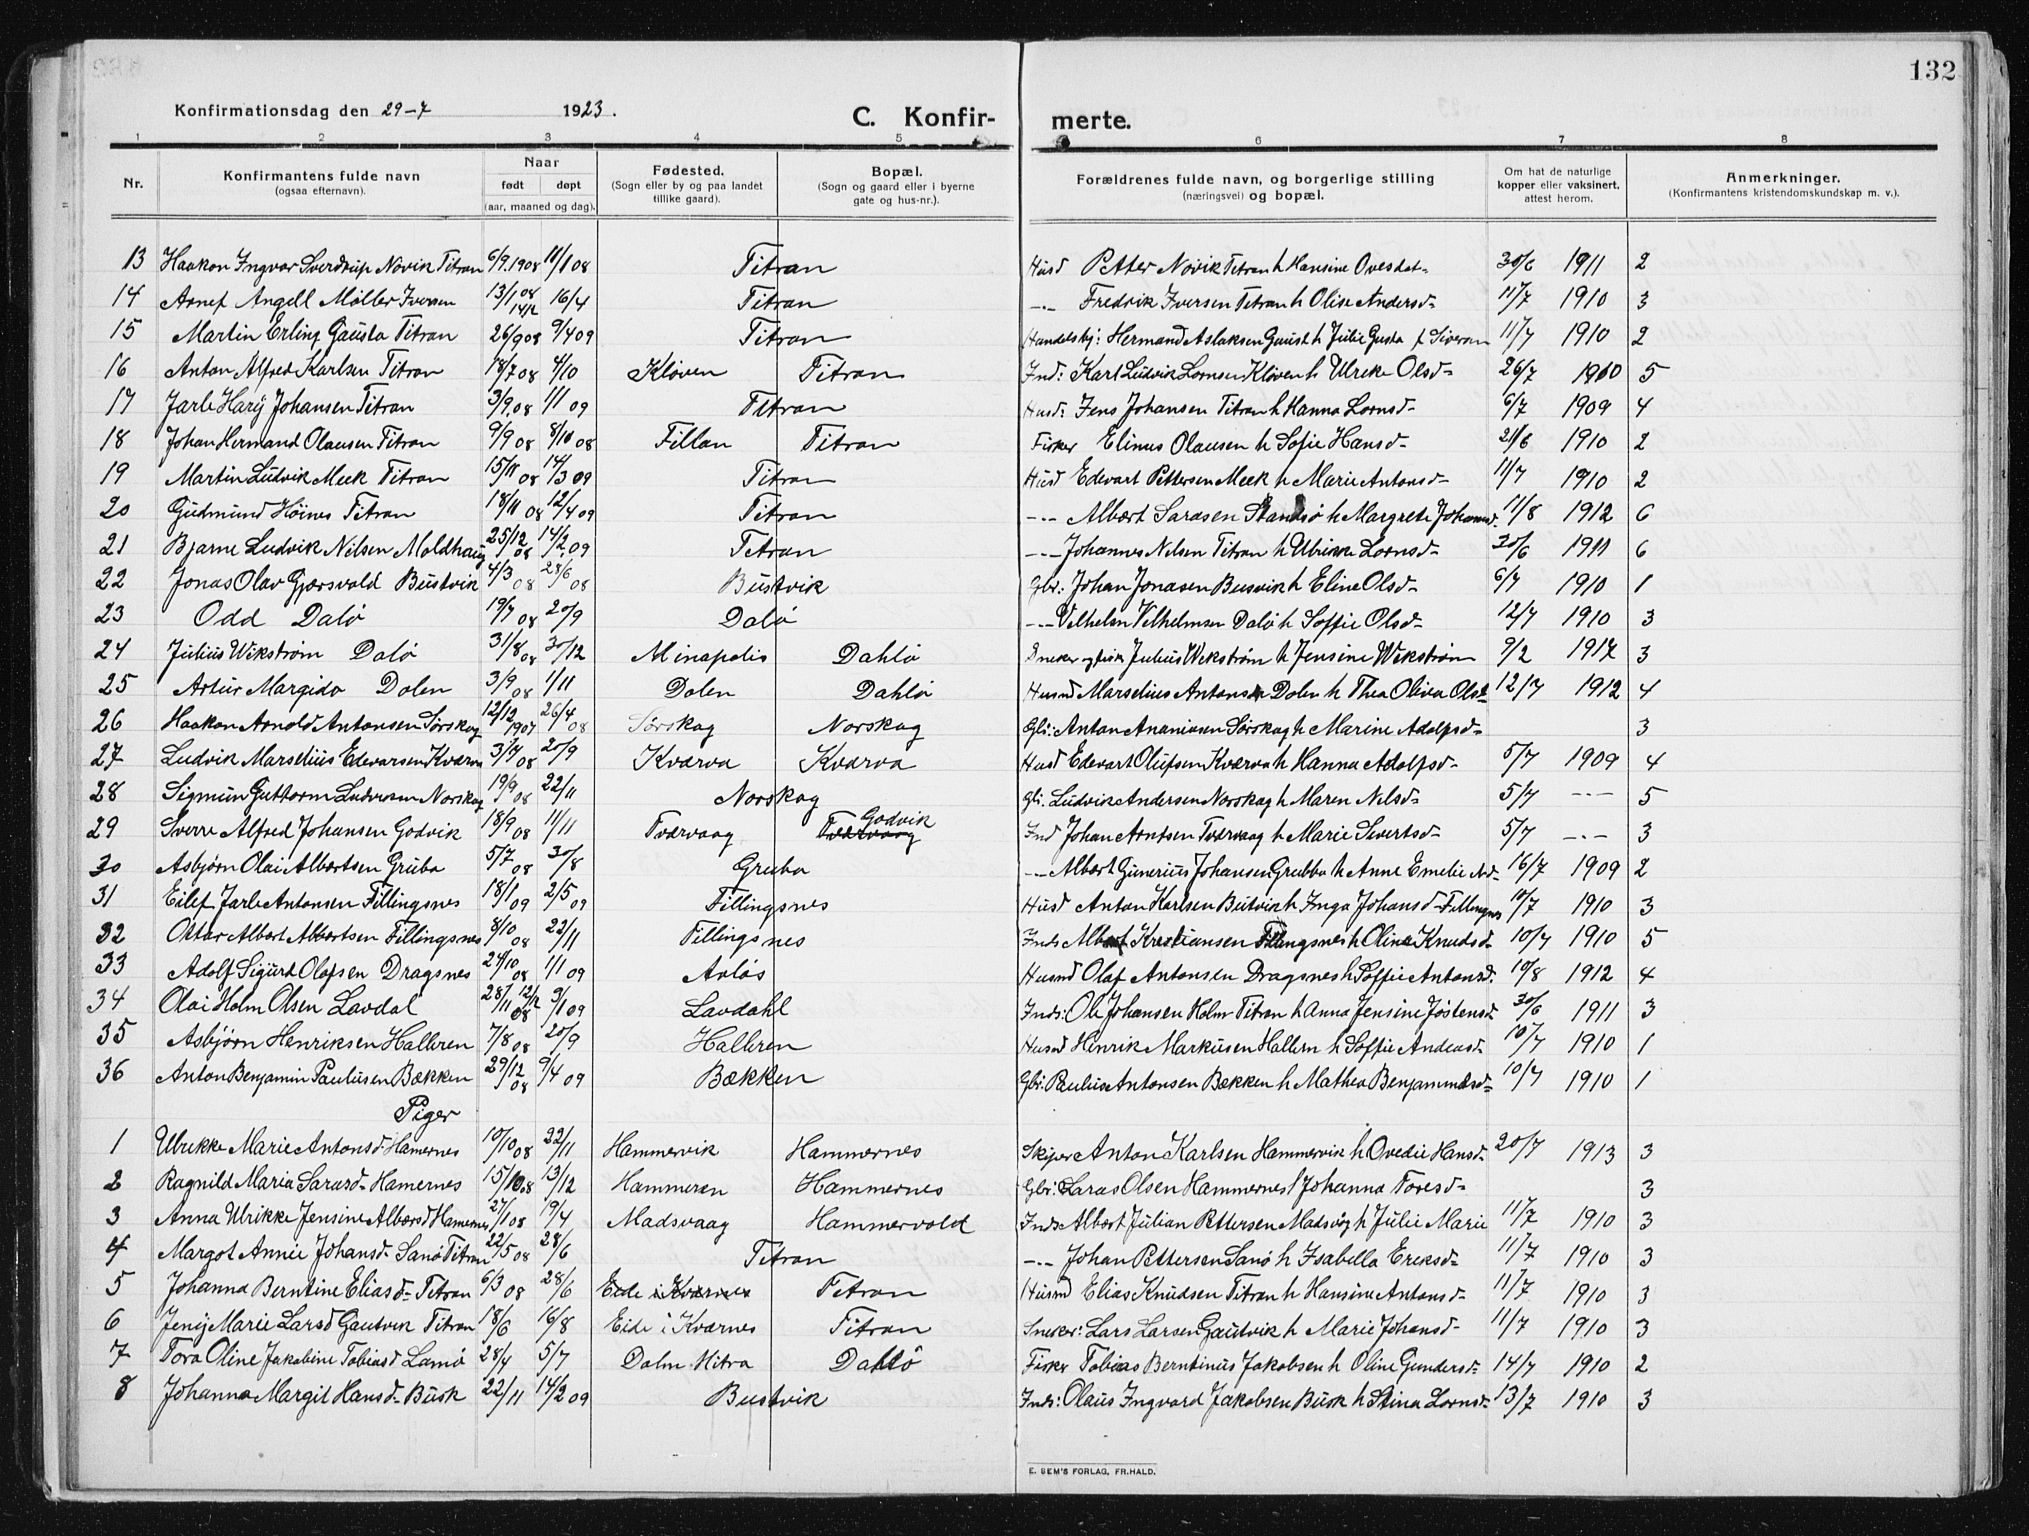 132
Konfirmationsdag den 29-7 1923.
C. Konfirmerte.
1 2 3 4 5 6 7 8
Nr.
Konfirmantens fulde navn
(ogsaa efternavn).
Naar
født døpt
(aar, maaned og dag).
Fødested.
(Sogn eller by og paa landet
tillike gaard).
Bopæl.
(Sogn og gaard eller i byerne
gate og hus-nr.).
Forældrenes fulde navn, og borgerlige stilling
(næringsvei) og bopæl.
Om hat de naturlige
kopper eller vaksinert,
attest herom.
Anmerkninger.
(Konfirmantens kristendomskundskap m. v.).
13 Haakon Ingvar Sverdrup Novik Titran 6/9.1908 11/1 08 Titran Husd Petter Novik Titran h Hansine Ovesdat- 30/6 1911 2
14 Angell Møller Iversen 13/1 08 14/12 16/4 Titran -..- Fredrik Iversen Titran h Olise Andersd- 11/7 1910 3
15 Martin Erling Gausta Titran 26/9 08 9/4 09 Titran Handelsbj: Hermand Aslaksen Gaust h Julie Gusta f Siversen 11/7 1910 2
16 Anton Alfred Karlsen Titran 18/7 08 4/10 Kløven Titran Ind: Karl Ludvik Lornsen Kløven h Ulreke Olsd- 26/7 1910 5
17 Jarle Hary Johansen Titran 3/9.08 1/11 09 Titran Husd: Jens Johansen Titran h Hanna Lornsd- 6/7 1909 4
18 Johan Hermand Olausen Titran 9/9 08 8/10 08 Fillan Titran Fisker Elinus Olausen h Sofie Hansd- 21/6 1910 2
19 Martin Ludvik Meek Titran 15/11 08 14/3 09 Titran Husd Edevart Pettersen Meek h Marie Antonsd- 11/7 1910 2
20 Gudmund Høines Titran 18/11 08 12/4 09 Titran -..- Albert Sarasen h Margrete Johannsd. 11/8 1912 6
21 Bjarne Ludvik Nilsen Moldhaug 25/12 08 14/2.09 Tetran -..- Johannes Nilsen Titran h Ulrikke Lornsd- 30/6 1911 6
22 Jonas Olav Gjærsvold Bustvik 4/3 08 28/6 08 Bustvik Gbr: Johan Jonasen Busvik h Eline Olsd- 6/7 1910 1
23 Odd Dalø 19/7 08 20/9 Dalø -..- Vilhelm Vilhelmsen Dalø h Soffie Olsd- 12/7 1910 3
24 Julius Wikstrøm Dalø 31/8 08 30/12 Minapolis Dahlø Sneker og fisk Julius Wekstrøm h Jensine Wekstrøm 9/2 1917 3
25 Artur Margido Dolen 3/9 08 1/11 Dolen Dahlø Husmd Marselius Antonsen Dolen h Thea Oliva Olsd- 12/7 1912 4
26 Haakon Arnold Antonsen Sørskag 12/12 1907 26/4 08 Sørskag Norskag Gbr: Anton Ananiasen Sørskag h Marine Adolfsd- 3
27 Ludvik Marselius Edevarsen Kvarva 3/7 08 20/9 Kvarva Kvarva Husd Edevart Olufsen Kvarva h Hanna Adolfsd- 5/7 1909 4
28 Sigmun Guttorm Ludvesen Norskag 19/9 08 22/11 Norskag Gbr. Ludvik Andersen Norskag h Maren Nilsd- 5/7 -..- 5
29 Sverre Alfred Johansen Godvik 18/9 08 11/11 Tværvaag Tværvaag Godvik Ind Johan Arntsen Tværvaag h Marie Sivertsd- 5/7 -..- 3
30 Asbjørn Olai Albertsen Gruba 5/7 08 30/8 Gruba -..- Albert Gunerius Johansen Grubba h Anne Emelie 16/7 1909 2
31 Eilef Jarle Antonsen Fillingsnes 18/1 09 2/5 09 Fillingsnes Husd Anton Karlsen Butvik h Inga Johansd- Fillingnes 10/7 1910 3
32 Ottar Albert Albertsen Fillingsnes 8/10 08 22/11 Fillingsnes Inds Albert Kristiansen Fillingsnes h Oline Knudsd- 10/7 1910 5
33 Adolf Sigurd Olafsen Dragsnes 24/10 08 1/1 09 Avløs Husmd Olaf Antonsen Dragsnes h Soffie Antonsd. 10/8 1912 4
34 Olai Holm Olsen Lavdal 28/11 12/12 08 9/1 09 Lavdahl Inds: Ole Johansen Holm Titran h Anna Jensine Jøstensd- 30/6 1911 3
35 Asbjørn Henriksen Halleren 7/8 08 20/9 Halleren Husmd Henrik Markusen Hallern h Soffie Andeasd- 10/7 1910 1
36 Anton Benjamin Paulusen Bækken 29/12 08 9/4 09 Bækken Gbr: Paulus Antonsen Bækken h Mathea Benjaminsd- 10/7 1910 1
Piger
1 Ulrikke Marie Antonsd- Hamernes 10/10 08 22/11 Hammervik Hammernes Skiper Anton Karlsen Hammervik h Ovedie Hansd- 20/7 1913 3
2 Ragnild Maria Sarasd- Hamernes 15/10.08 13/12 Hammeren Hammernes Gbr: Saras Olsen Hammernes h Johanna Toresd- 3
3 Anna Ulrikke Jensine Albersd Hamernes 27/1 08 19/4 Madsvaag Hammervold Inds Albert Julian Pettersen Madsvåg h Julie Marie 11/7 1910 3
4 Margot Annie Johansd- Sanø Titran 22/5 08 28/6 Titran -..- Johan Pettersen Sanø h Isabella Ereksd- 11/7 1910 3
5 Johanna Berntine Eliasd- Tetran 6/3 08 28/6 Eide i Kværnes Tetran Husmd Elias Knudsen Titran h Hansine Antonsd- 11/7 1910 3
6 Jenij Marie Larsd Gautvik Titran 18/6 16/8 Eide i Kværnes Titran Sneker: Lars Larsen Gautvik h Marie Johansd- 11/7 1910 3
7 Tora Oline Jakobine Tobiasd Lamø 28/4 5/7 Dolm Hitra Dahlø Fisker Tobias Berntinus Jakobsen h Oline Gundersd- 14/7 1910 2
8 Johanna Margit Hansd- Busk 22/11 14/2 09 Bustvik Inds: Olaus Ingvard Jakobsen Busk h Stina Lornsd- 13/7 1910 3
E. SEM'S FORLAG, FR.HALD.